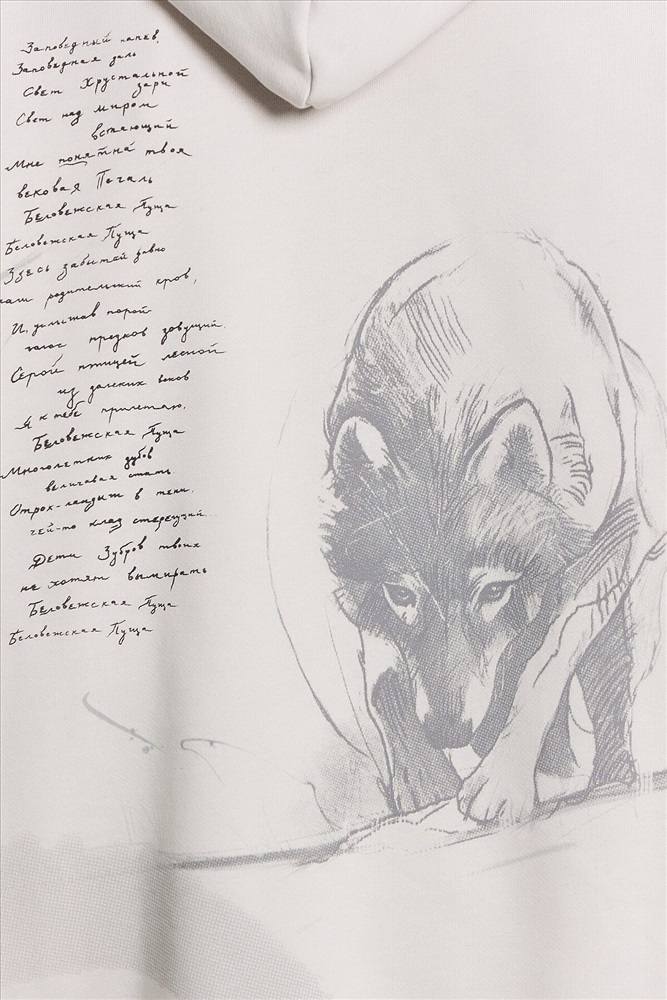 Заповедный напев,
Заповедная даль
Свет Хрустальной
зари
Свет над миром
встающий
Мне понятна твоя
вековая Печаль
Беловежская Пуща
Беловежская Пуща
Здесь забытый давно
наш родительский кров,
И, услышав порой
голос предков зовущий.
Серой птицей лесной
из далеких веков
Я к тебе прилетаю,
Беловежская Пуща
Многолетних дубов
величавая стать
Отрок-ландыш в тени,
чей-то клад стерегущий...
Дети Зубров твоих
не хотят вымирать
Беловежская Пуща
Беловежская Пуща